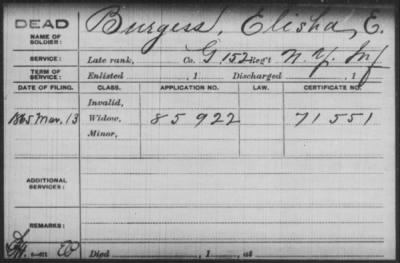 DEAD
Burgess, Elisha, E.
NAME OF SOLDIER:
SERVICE: Late rank, Co. G 152 Reg't N. Y. Inf
TERM OF SERVICE: Enlisted , 1 Discharged , 1
DATE OF FILING. CLASS. APPLICATION NO. LAW. CERTIFICATE NO.
Invalid,
1865 Mar. 13 Widow, 85922 71551
Minor,
ADDITIONAL SERVICES:
REMARKS:
Died , 1 , at